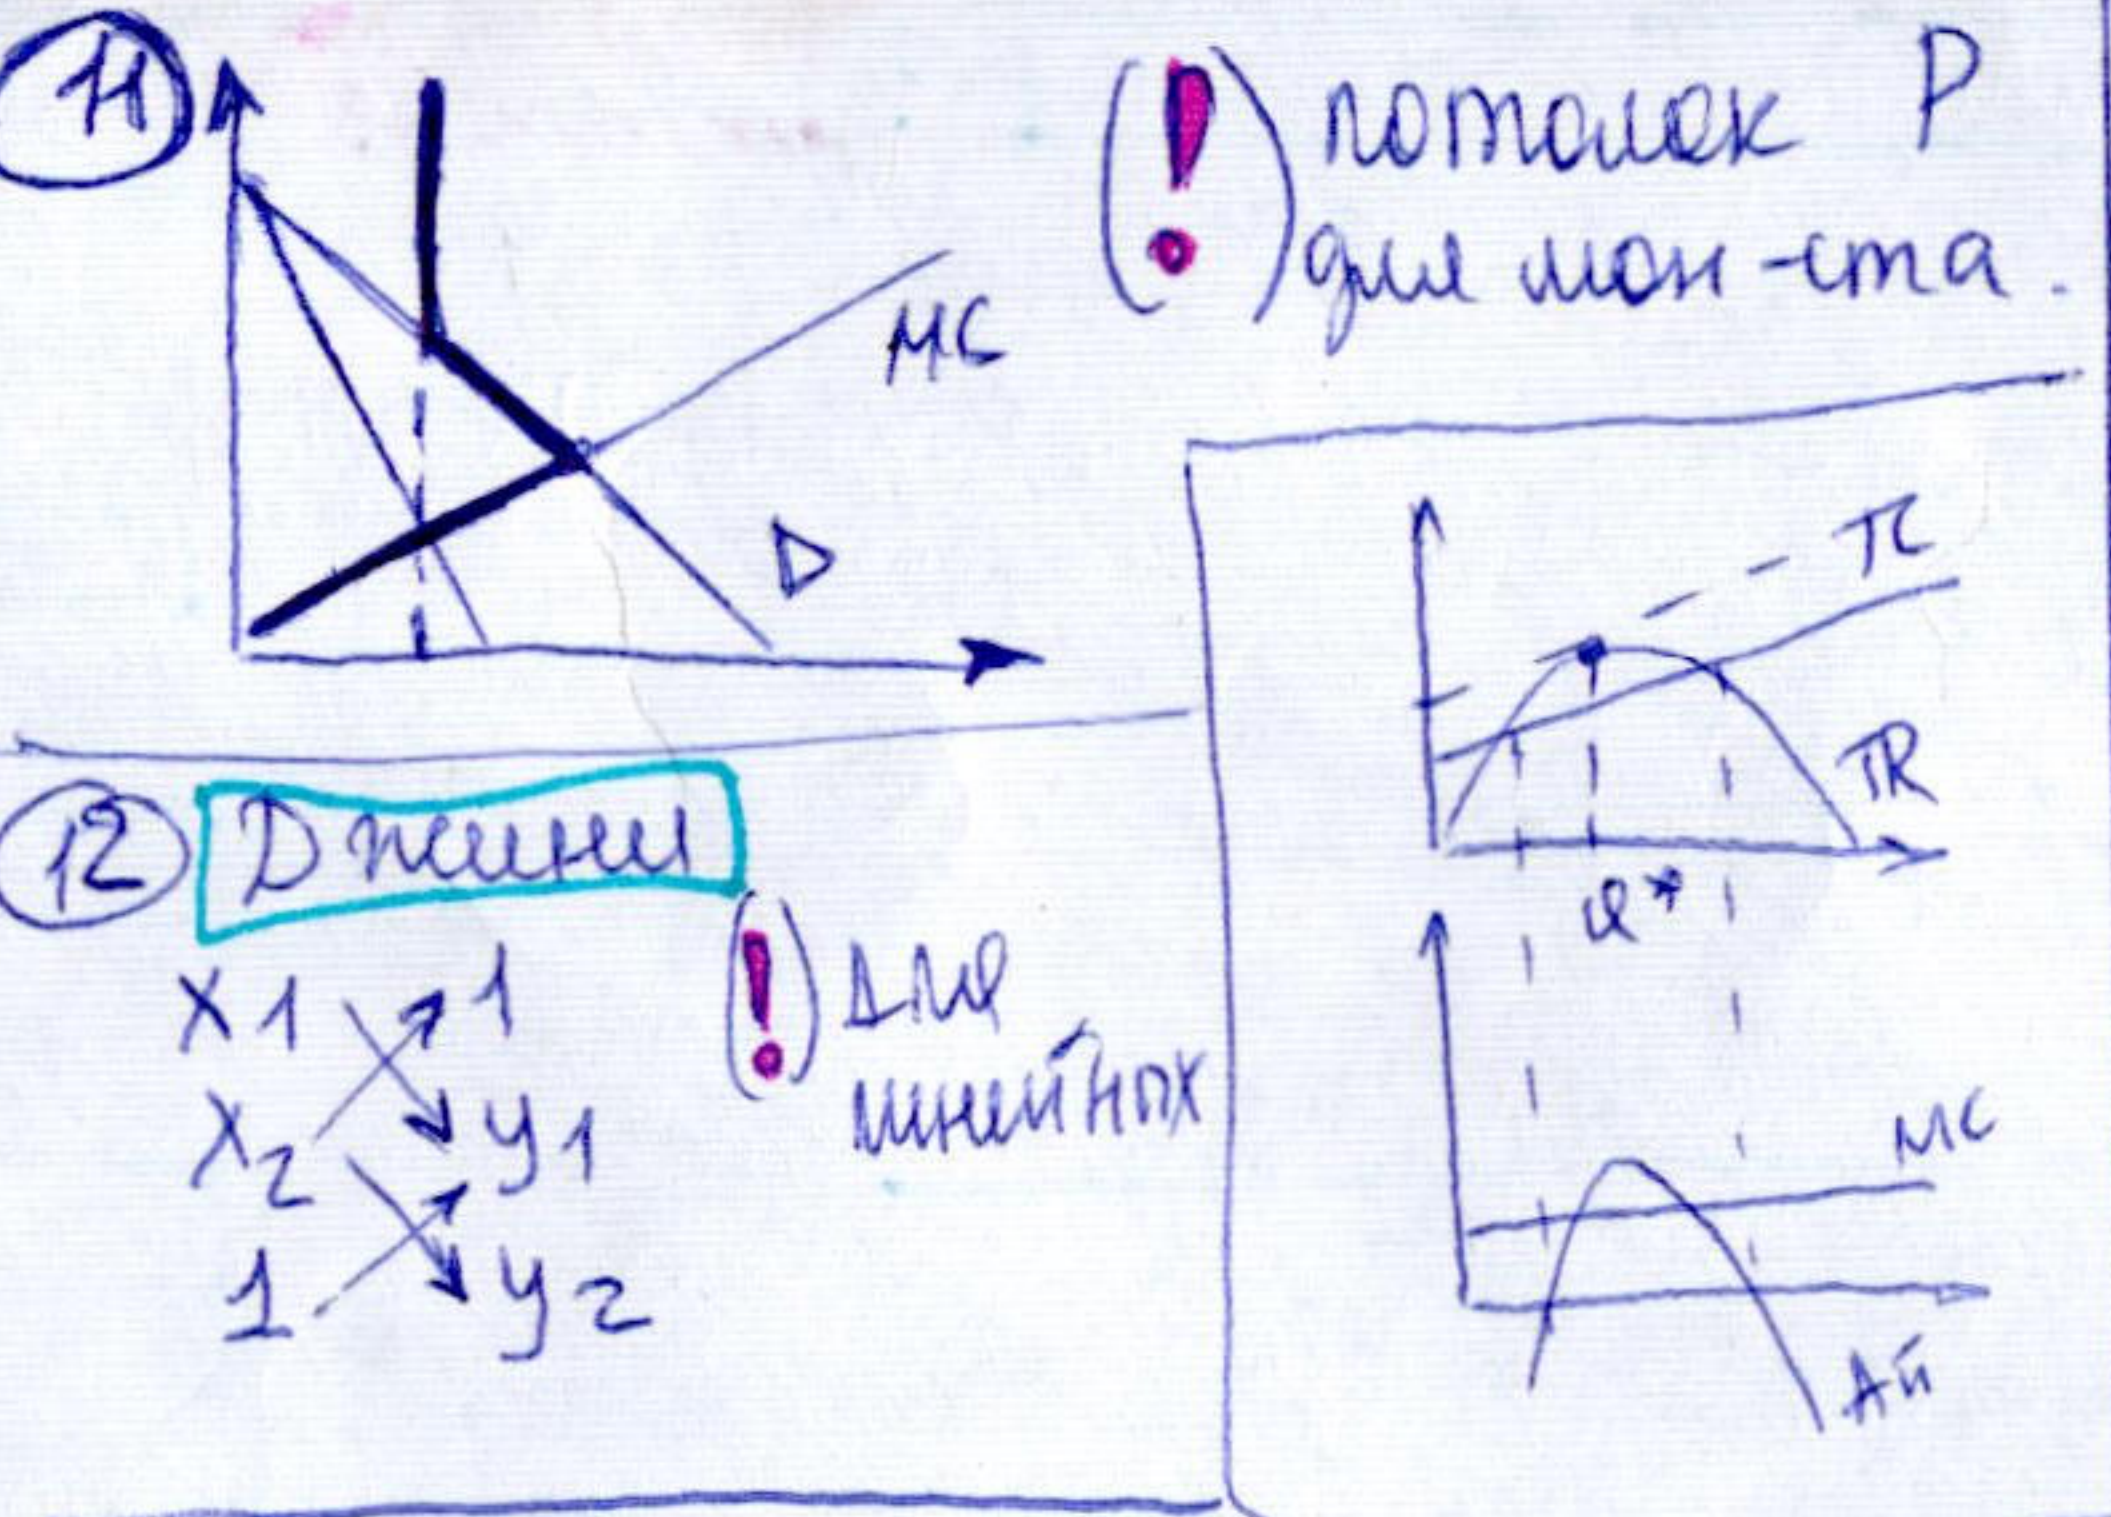 11
(!) потолок P
для мон-ста.
MC
D
12 Джини
x1 1
x2 y1
1 y2
(!) для
линейных
TC
TR
Q*
MC
Aπ